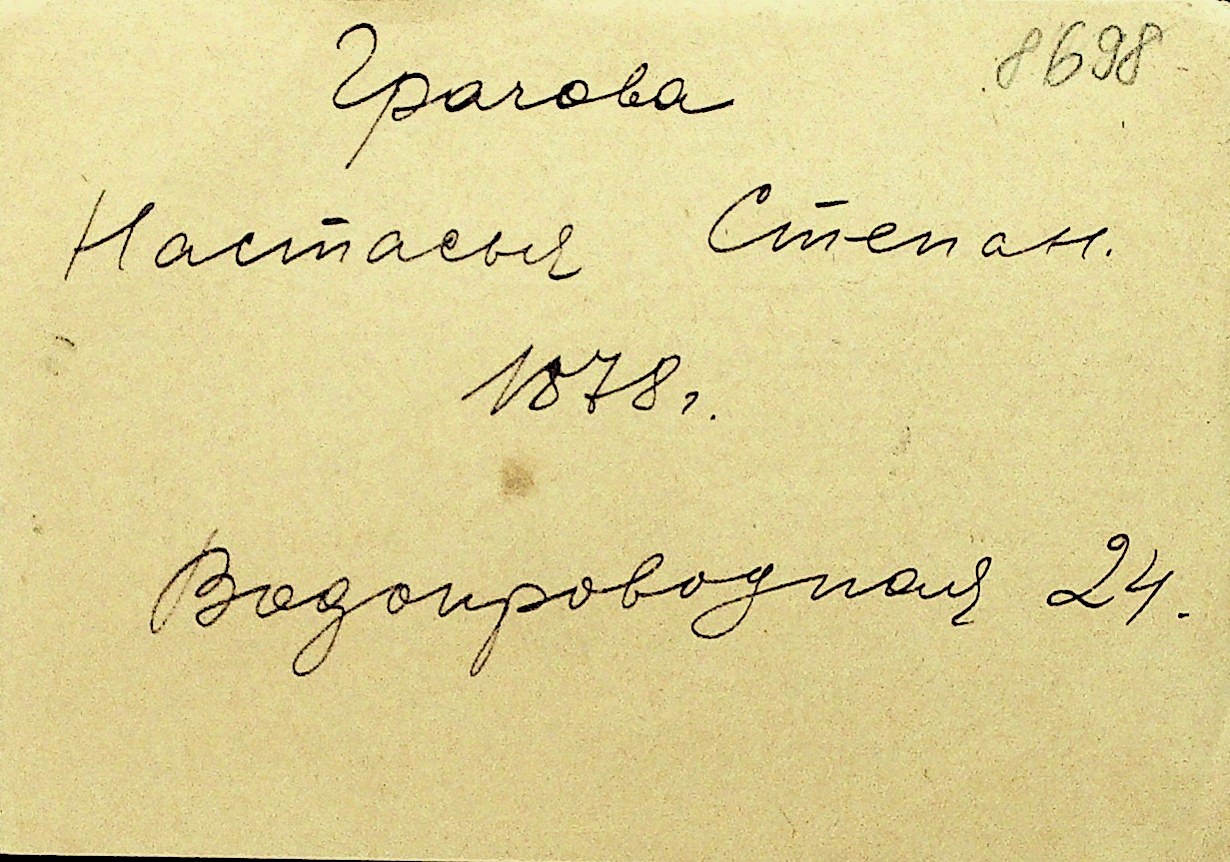 8698
Грачова
Настасья Степан.
1878 г.
Водопроводная 24.